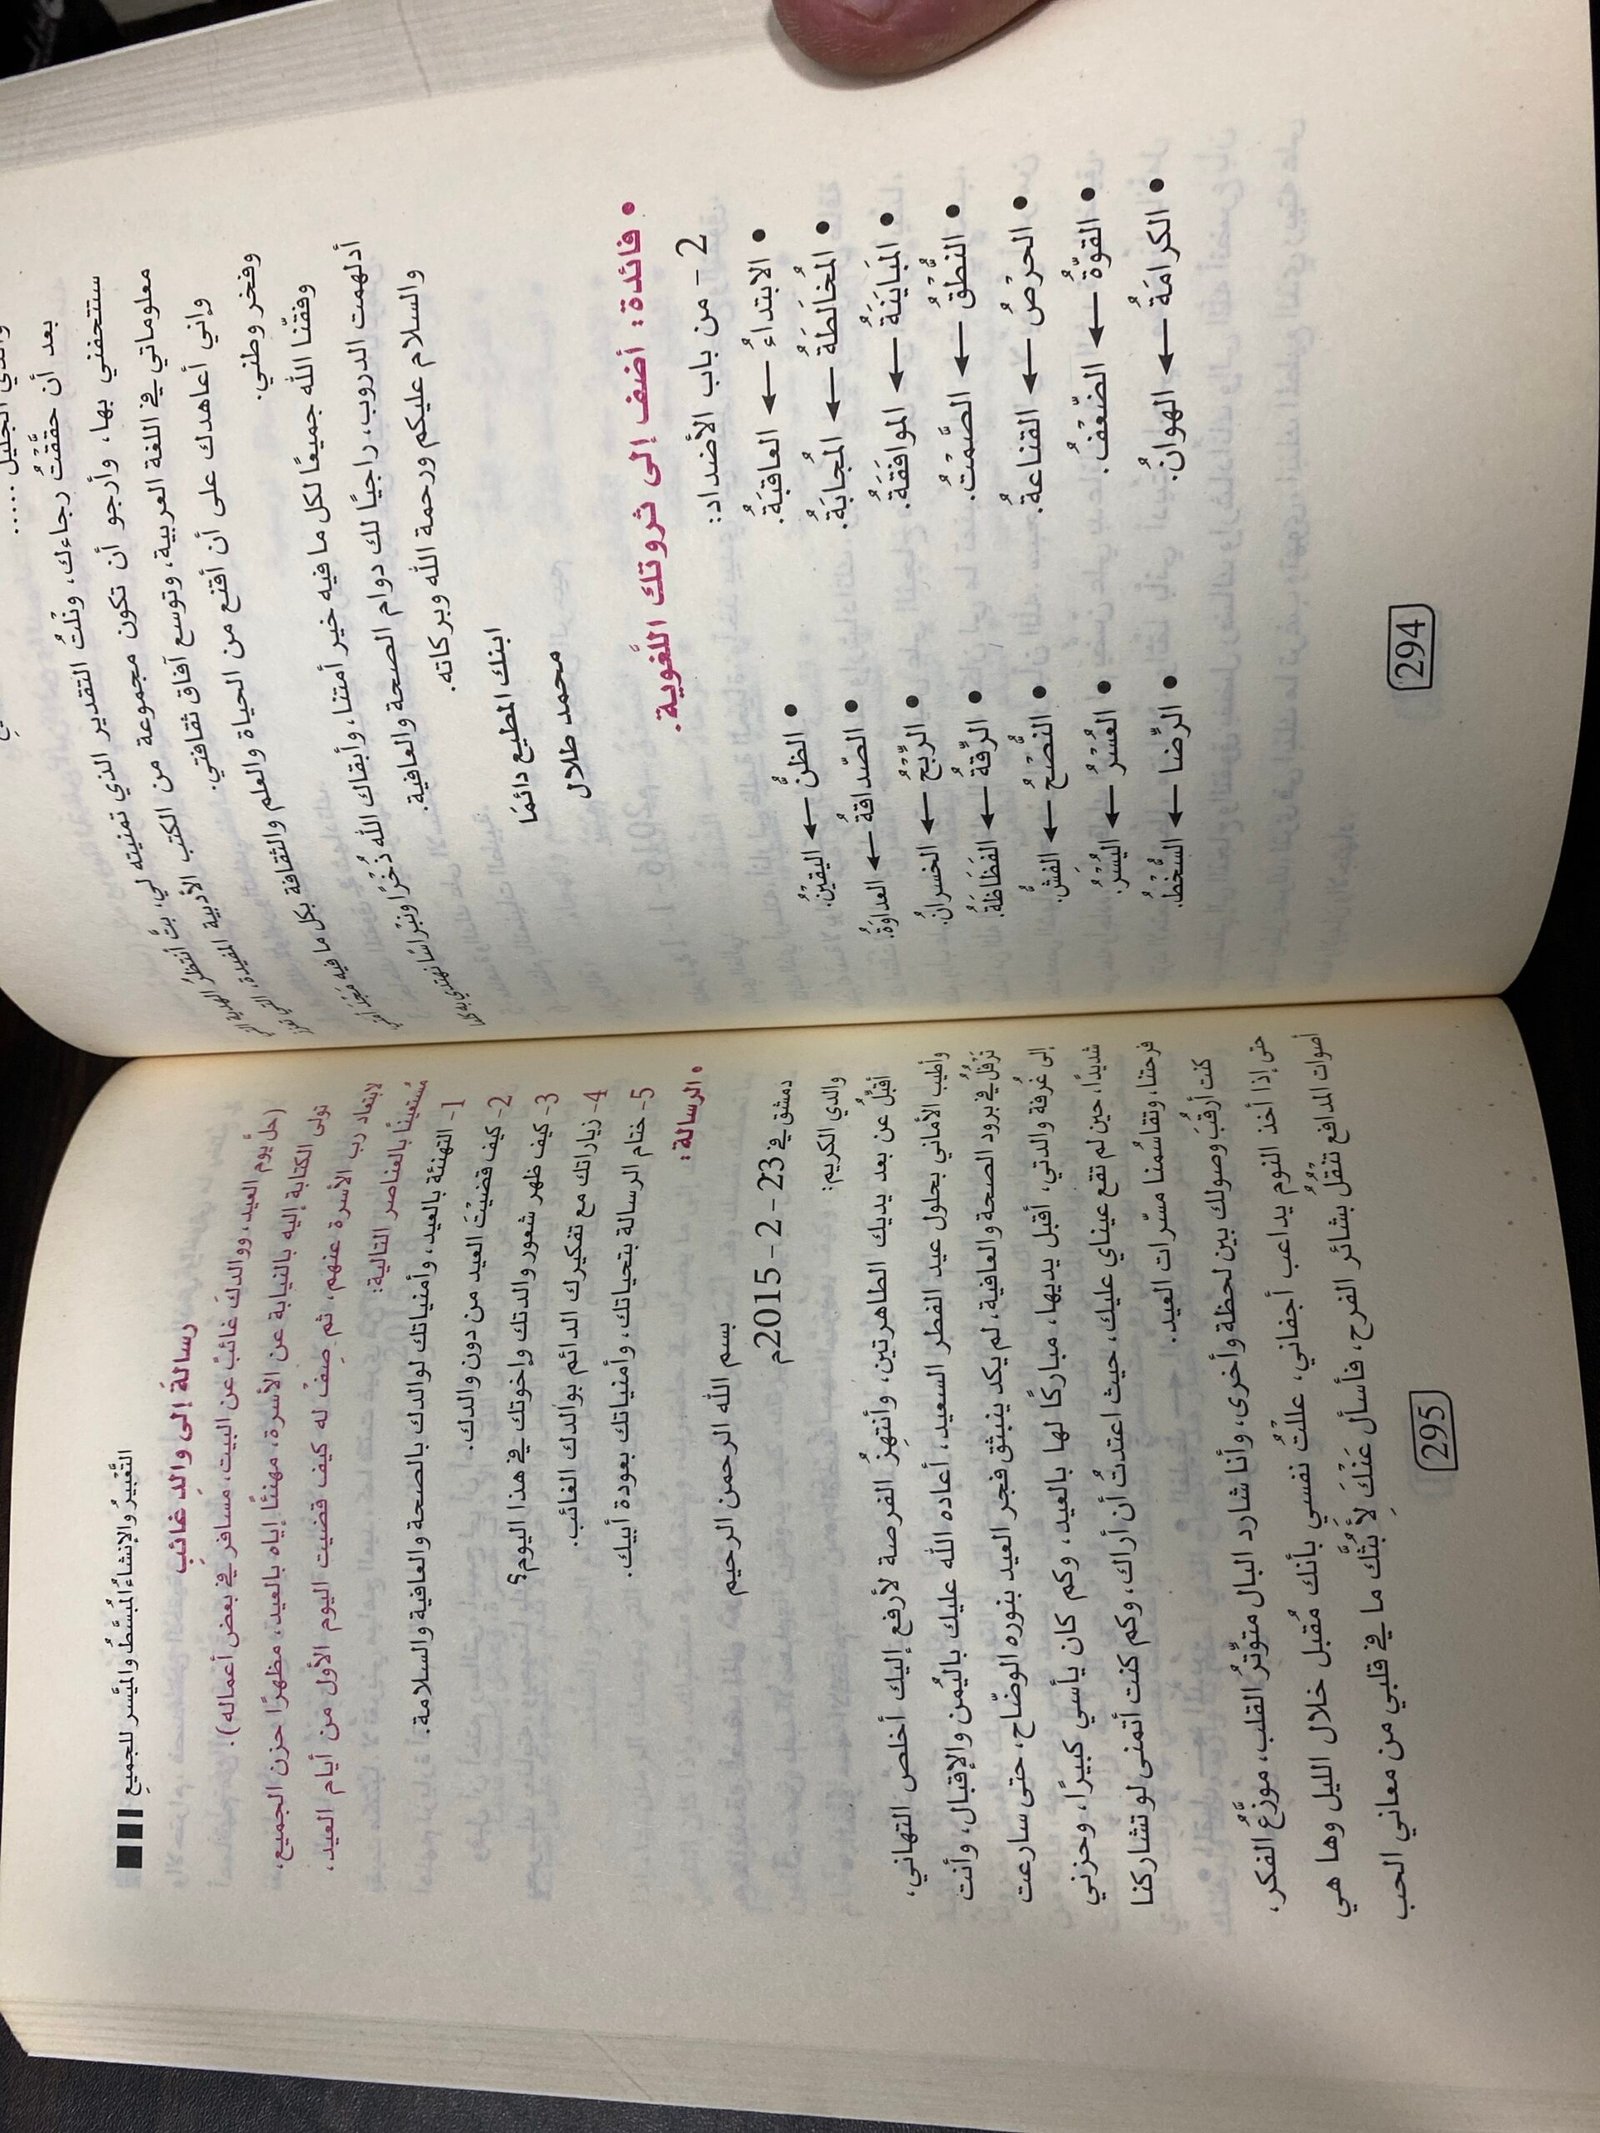 والدي الجليل.....
بعد أن حقَّقْتُ رجاءك، ونلْتُ التقدير الذي تمنيته لي، بتُّ أنتظرُ الهدية التي
ستتحفني بها، وأرجو أن تكون مجموعة من الكتب الأدبية المفيدة، التي تعزز
معلوماتي في اللغة العربية، وتوسع آفاق ثقافتي.
وإني أعاهدك على أن أقتنع من الحياة والعلم والثقافة بكل ما فيه مَجْدُ أمتي
وفخر وطني.
وفقنا الله جميعًا لكل ما فيه خير أمتنا، وأبقاك الله ذُخْرًا ونبْراسًا نهتدي به كلما
أدلهمت الدروب، راجيًا لك دوام الصحة والعافية.
والسلام عليكم ورحمة الله وبركاته.
ابنك المطيع دائمًا
محمد طلال
• فائدة: أضف إلى ثروتك اللُّغوية.
2 - من باب الأضداد:
• الابتداءُ ← العاقبَةُ. • الظنُّ ← اليقيْنُ.
• المُخالَطَةُ ← المُجابَةُ. • الصّداقةُ ← العداوَةُ.
• المَبَايَنَةُ ← الموافَقَةُ. • الرِّبْحُ ← الخسرانُ.
• النُّطْقُ ← الصَّمْتُ. • الرِّقّةُ ← الفَظَاظَةُ.
• الحرْصُ ← القناعةُ. • النُّصْحُ ← الغشُّ.
• القوّةُ ← الضّعْفُ. • العُسْرُ ← اليُسْرُ.
• الكرامَةُ ← الهوانُ. • الرِّضا ← السُّخْطُ.
294
التَّعْبيرُ والإنشاءُ المُبسَّطُ والميَّسر للجميعِ
رسالةٌ إلى والدٍ غائبٍ
(حلَّ يوْم العيد، ووالدكَ غائبٌ عن البيت، مسافر في بعض أعماله).
تولى الكتابة إليه بالنيابة عن الأسرة، مهنئًا إياه بالعيد، مظهرًا حزن الجميع،
لابتعاد رب الأسرة عنهم، ثم صِفْ له كيف قضيت اليوم الأول من أيام العيد،
مُستعينًا بالعناصر التالية:
1- التهنئة بالعيد، وأمنياتك لوالدك بالصحة والعافية والسلامة.
2- كيف قضيْتَ العيد من دون والدك.
3- كيف ظهر شعور والدتك وإخوتك في هذا اليوم؟
4- زياراتك مع تفكيرك الدائم بوالدك الغائب.
5- ختام الرسالة بتحياتك، وأمنياتك بعودة أبيك.
• الرسالة:
بسم الله الرحمن الرحيم
دمشق في 23 - 2 - 2015م
والدي الكريم:
أقبِّلُ عن بعد يديك الطاهرتين، وأنتهِزُ الفرصة لأرفع إليك أخلص التهاني،
وأطيب الأماني بحلول عيد الفطر السعيد، أعاده الله عليك باليُمن والإقبال، وأنت
تَرْفُلُ في برود الصحة والعافية، لم يكد ينبثق فجر العيد بنوره الوضّاح، حتى سارعت
إلى غُرفة والدتي، أقبل يديها، مباركًا لها بالعيد، وكم كان يأسي كبيرًا، وحزني
شديدًا، حين لم تقع عيناي عليك، حيث اعتدتُ أن أراك، وكم كنت أتمنى لو تشاركنا
فرحتنا، وتقاسُمنا مسّرات العيد.
كنت أرقُبَ وصولك بين لحظة وأخرى، وأنا شارد البال متوتِّرُ القلب، موزَّعُ الفكر،
حتى إذا أخذ النوم يداعب أجفاني، عللْتُ نفسي بأنك مُقبل خلال الليل وها هي
أصوات المدافع تنْقُلُ بشائر الفرح، فأسأل عَنْكَ لأَبُثَّك ما في قلبي من معاني الحب
295